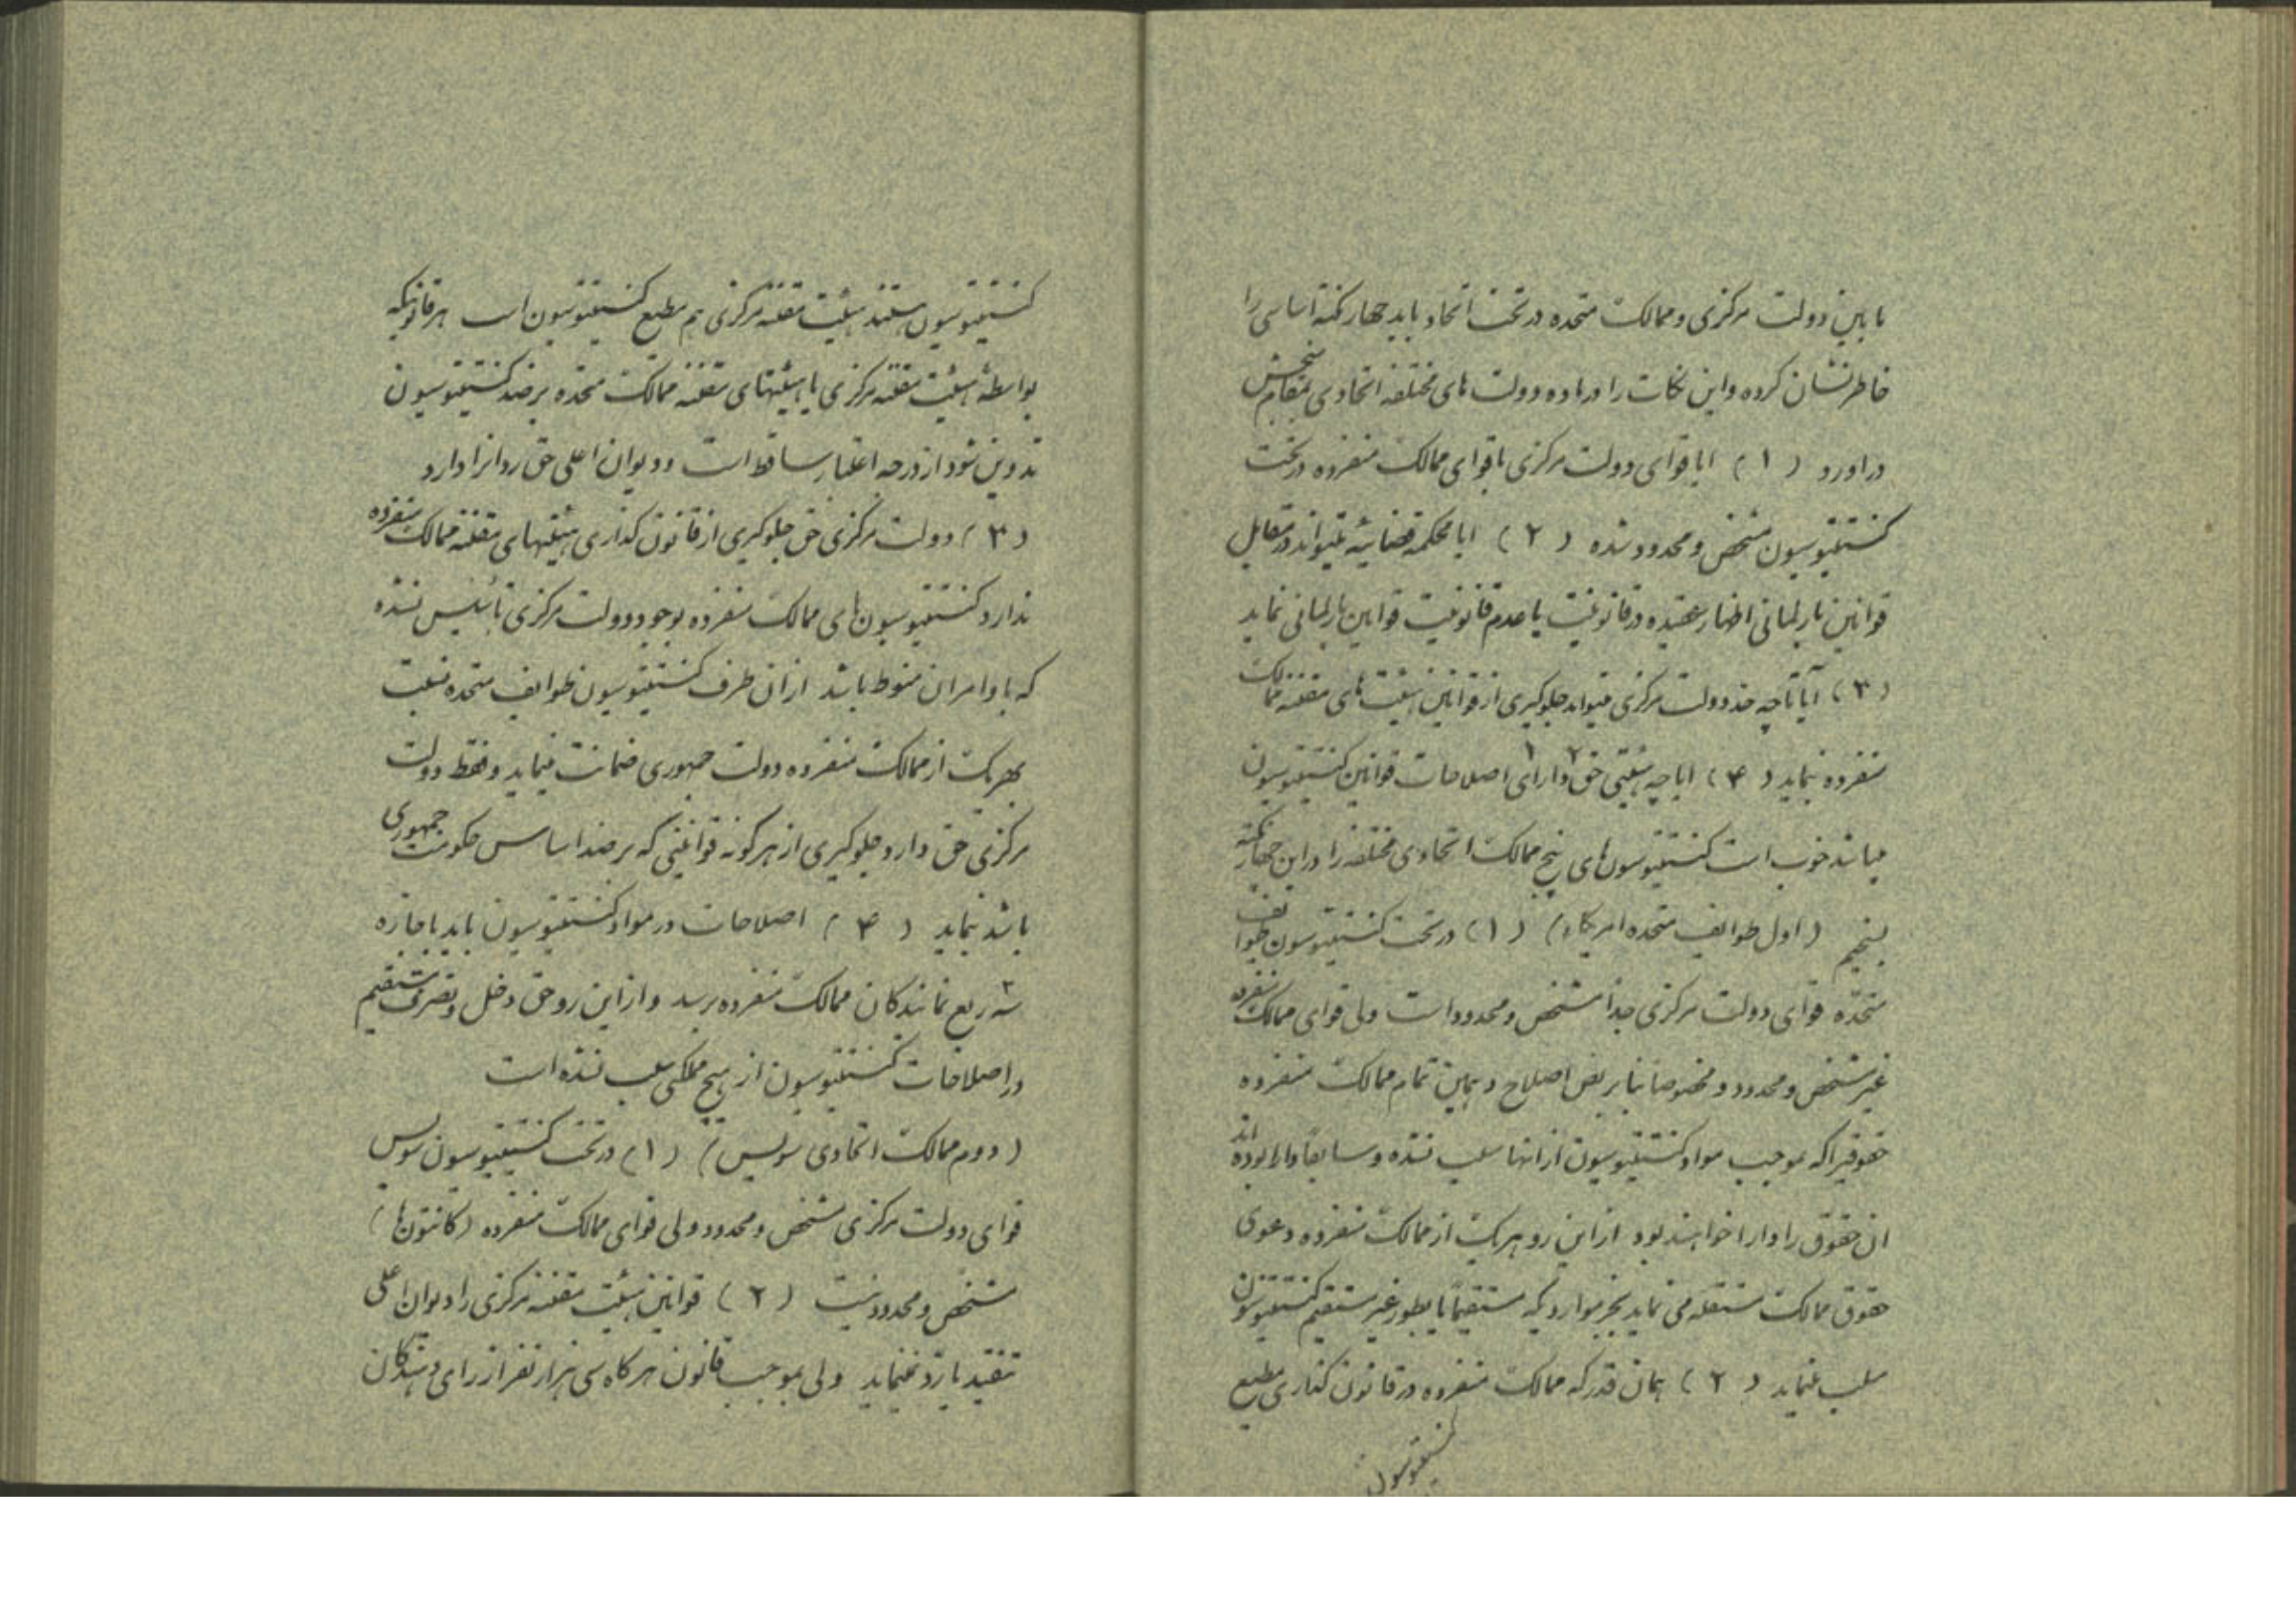 ما بین دولت مرکزی و ممالک متحده در تحت اتحاد باید چهار نکتهٔ اساسی را
خاطر نشان کرده و این نکات را در باده دولت های مختلفه اتحادی بمقام سنجش
در اورد (۱) ایا قوای دولت مرکزی یا قوای ممالک منفرده در تحت
کنستیتوسیون مشخص و محدود شده (۲) ایا محکمه قضائیه میتواند در مقابل
قوانین پارلمانی اظهار عقیده در قانونیت یا عدم قانونیت قوانین پارلمانی نماید
(۳) آیا تا چه حد دولت مرکزی میتواند جلوگیری از قوانین هیئت های مقننه ممالک
منفرده نماید (۴) ایا چه هیئتی حق ۲ دارای ۱ اصلاحات قوانین کنستیتوسیون
میباشد خوب است کنستیتوسیون های پنج ممالک اتحادی مختلفه را در این چهار نکته
بسنجیم (اول طوایف متحده امریکا) (۱) در تحت کنستیتوسیون طوایف
متحده قوای دولت مرکزی جداً مشخص و محدود است ولی قوای ممالک منفرده
غیر مشخص و محدود و مخصوصاً بنا بر نص اصلاح دهمین تمام ممالک منفرده
حقوقیرا که بموجب مواد کنستیتوسیون از انها سلب نشده و سابقاً دارا بوده اند
ان حقوق را دارا خواهند بود از این رو هر یک از ممالک منفرده دعوی
حقوق ممالک مستقله می نماید بجز مواردیکه مستقیماً یا بطور غیر مستقیم کنستیتوسیون
سلب نماید (۲) همان قدر که ممالک منفرده در قانون گذاری مطیع
کنستیتوسیون
کنستیتوسیون هستند هیئت مقننه مرکزی هم مطیع کنستیتوسیون است هر قانونیکه
بواسطهٔ هیئت مقننه مرکزی یا هیئتهای مقننه ممالک متحده بر ضد کنستیتوسیون
تدوین شود از درجه اعتبار ساقط است و دیوان اعلی حق رد انرا دارد
(۳) دولت مرکزی حق جلوگیری از قانون گذاری هیئتهای مقننه ممالک منفرده
ندارد کنستیتوسیون های ممالک منفرده بوجود دولت مرکزی تأسیس نشده
که با وامران منوط باشد از ان طرف کنستیتوسیون طوایف متحده نسبت
بهر یک از ممالک منفرده دولت جمهوری ضمانت مینماید و فقط دولت
مرکزی حق دارد جلوگیری از هر گونه قوانینی که بر ضد اساس حکومت جمهوری
باشد نماید (۴) اصلاحات در مواد کنستیتوسیون باید باجازه
سه ۳ ربع نمایندگان ممالک منفرده برسد و از این رو حق دخل و تصرف مستقیم
در اصلاحات کنستیتوسیون از هیچ مملکتی سلب نشده است
(دوم ممالک اتحادی سویس) (۱) در تحت کنستیتوسیون سویس
قوای دولت مرکزی مشخص و محدود ولی قوای ممالک منفرده (کانتون ها)
مشخص و محدود نیست (۲) قوانین هیئت مقننه مرکزی را دیوان اعلی
تنقید یا رد نمینماید ولی بموجب قانون هر گاه سی هزار نفر از رای دهندگان